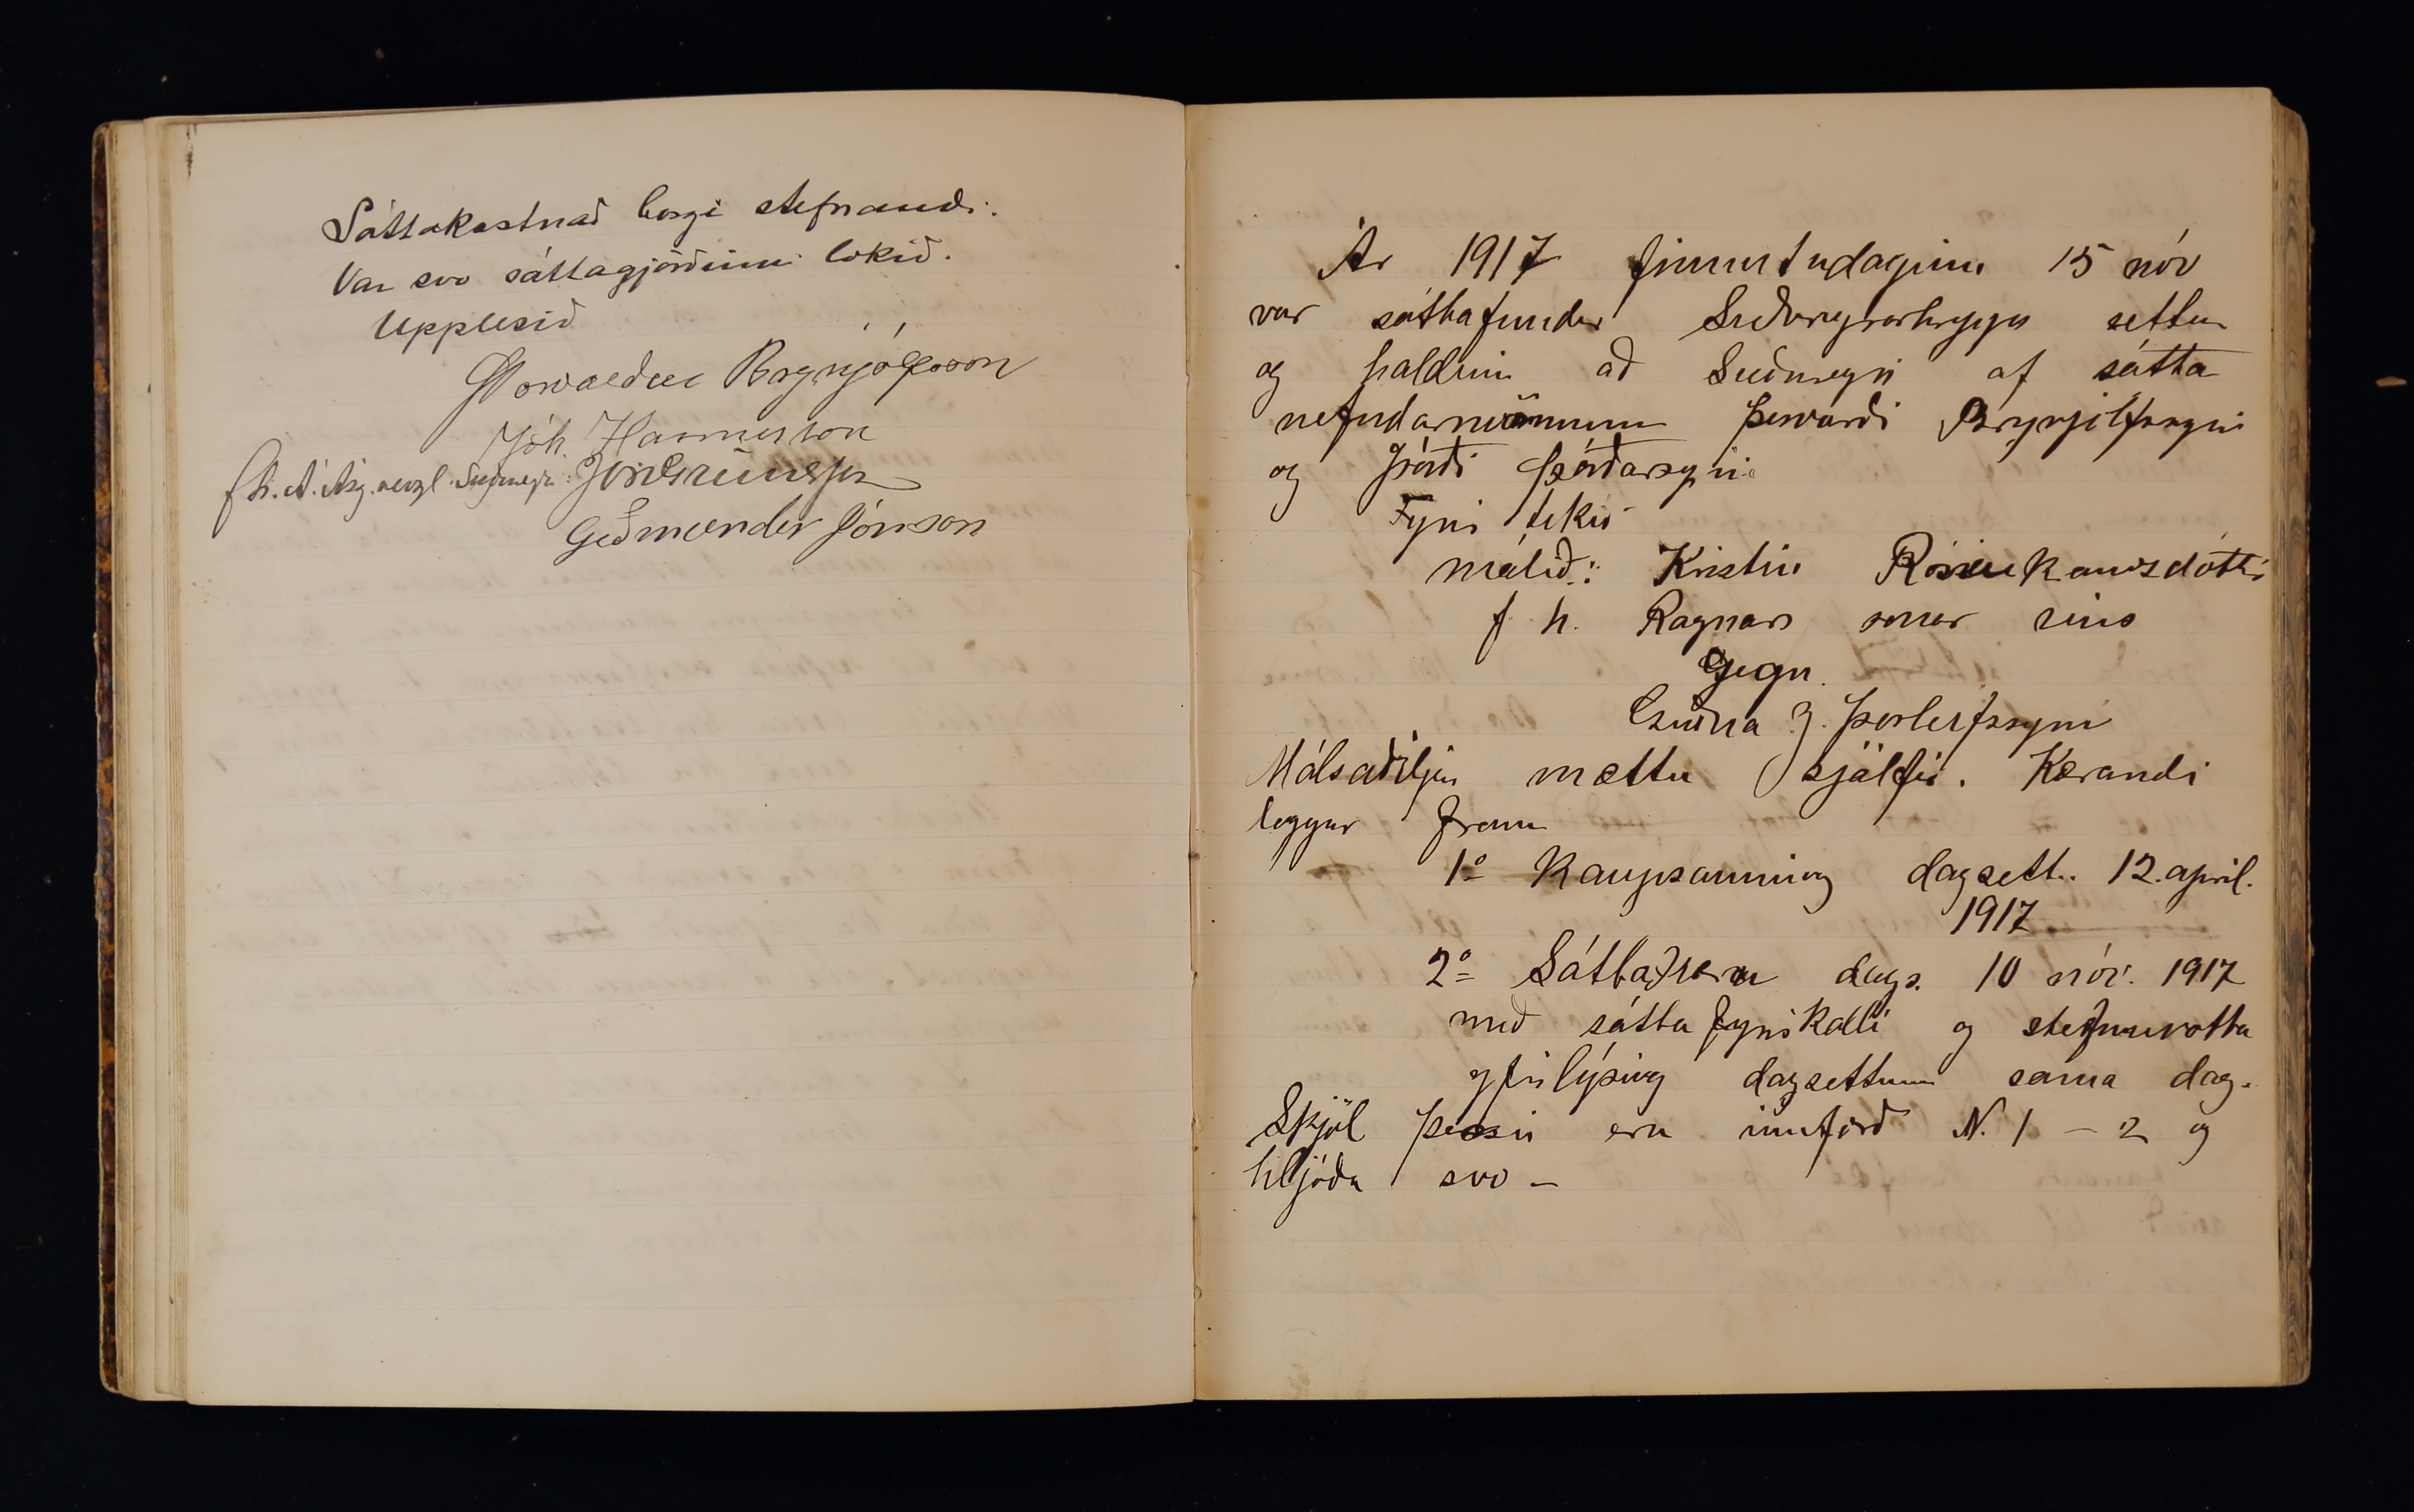 Sáttakostnað borgi stefnandi.
Var svo sáttagjörðinni lokið.
Upplesið
Þorvaldur Brynjólfsson
Jóh. Hannesson
f.h. Á. Ásg. verzl. Suðureyri: Jón Grímsson
Guðmundur Jónsson
Ár 1917 fimmtudaginn 15 nóv
var sáttafundur Suðureyrarhrepps settur
og haldinn að Suðureyri af sátta
nefndarmönnum Þorvarði Brynjólfssyni
og Þórði Þórðarsyni.
Fyrir tekið
málið: Kristín Rósinkarsdóttir
f h. Ragnars sonar síns
Gegn.
Guðna J. Þorleifssyni
Málsaðiljar mættu sjálfir. Kærandi
leggur fram
1º Kaupsamning dagsett. 12. apríl.
1917
2º Sáttakæru dags. 10 nóv. 1917
með sátta fyrirkalli og stefnuvotta
yfirlýsing dagsettum sama dag.
Skjöl þessi eru innfærð N. 1 - 2 og
hljóða svo -